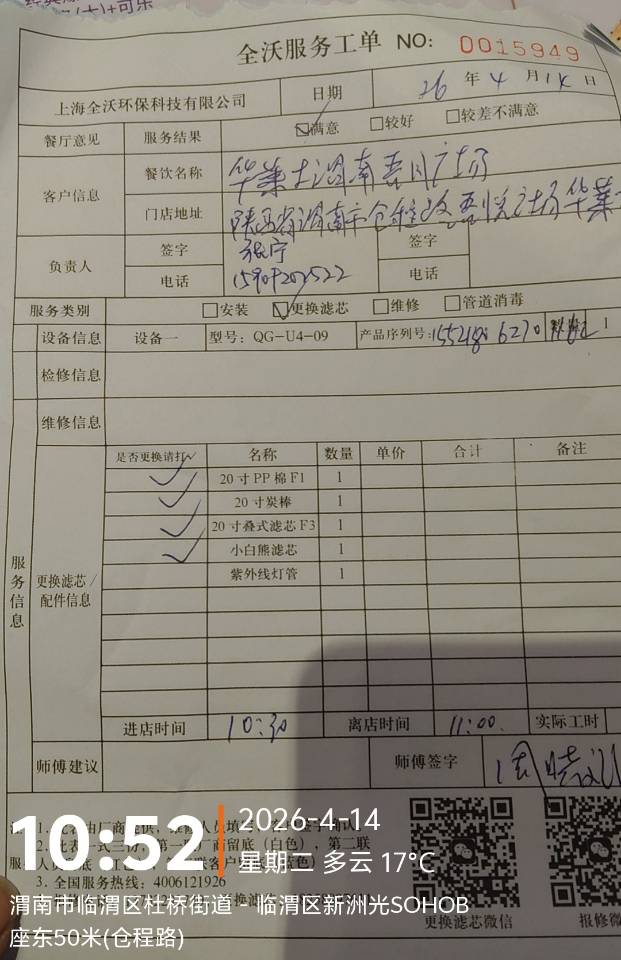 全沃服务工单 NO: 0015949
上海全沃环保科技有限公司 日期 26年4月14日
餐厅意见 服务结果 ☑满意 □较好 □较差不满意
客户信息 餐饮名称 华莱士渭南吾悦广场
门店地址 陕西省渭南市仓程路吾悦广场华莱士
负责人 签字 张宁 签字
电话 电话
服务类别 □安装 ☑更换滤芯 □维修 □管道消毒
设备信息 设备一 型号: QG-U4-09 产品序列号: 1
检修信息
维修信息
服务信息
更换滤芯/
配件信息
是否更换请打√ 名称 数量 单价 合计 备注
✓ 20寸PP棉F1 1
✓ 20寸炭棒 1
✓ 20寸叠式滤芯F3 1
✓ 小白熊滤芯 1
紫外线灯管 1
进店时间 10:30 离店时间 11:00 实际工时
师傅建议 师傅签字
3. 全国服务热线: 4006121926
更换滤芯微信 报修微
10:52
2026-4-14
星期二 多云 17℃
渭南市临渭区杜桥街道-临渭区新洲光SOHOB
座东50米(仓程路)